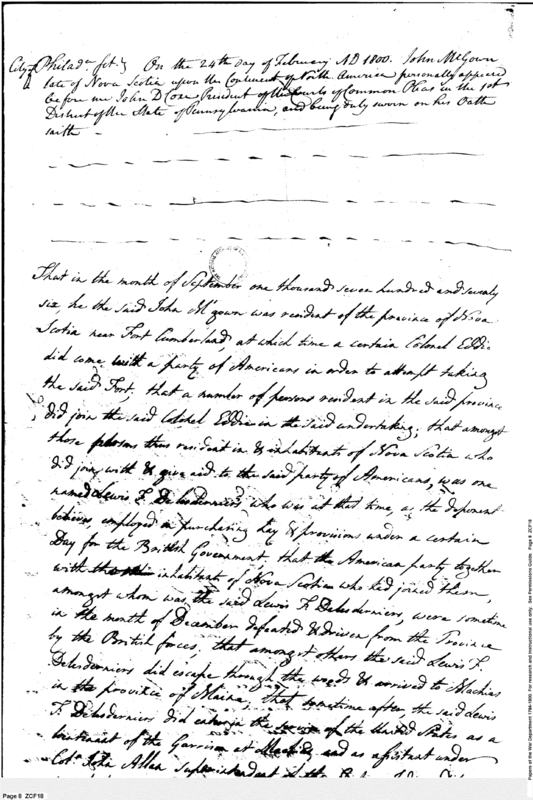 City of Philada. Sct. On the 24th day of February AD 1800. John McGown
late of Nova Scotia upon the Continent of North America personally appeared
before me John D Coxe President of the Courts of Common Pleas in the 1st
District of the State of Pennsylvania, and being duly sworn on his Oath
saith
That in the month of September one thousand seven hundred and seventy
six, he the said John McGown was resident of the province of Nova
Scotia near Fort Cumberland, at which time a certain Colonel Eddie
did come with a party of Americans in order to attempt taking
the said Fort, that a number of persons resident in the said province
did join the said Colonel Eddie in the said undertaking; that amongst
those persons thus resident in & inhabitants of Nova Scotia who
did join with & give aid to the said party of Americans, was one
named Lewis F. Delesderniers who was at that time, as the deponent
believes, employed in purchasing Hay & provisions under a certain
Day for the British Government, that the American party together
with inhabitants of Nova Scotia who had joined them,
amongst whom was the said Lewis F. Delesderniers, were sometime
in the month of December defeated & driven from the Province
by the British forces; that amongst others the said Lewis F.
Delesderniers did escape through the woods & arrived to Machias
in the province of Maine, that sometime after the said Lewis
F. Delesderniers did enter in the service of the United States as a
lieutenant of the Garrison at Machias and as assistant under
Col. John Allan Superintendent
Page 8 ZCF18
Papers of the War Department 1784-1800. For research and instructional use only. See Permissions Guide. Page 8 ZCF18